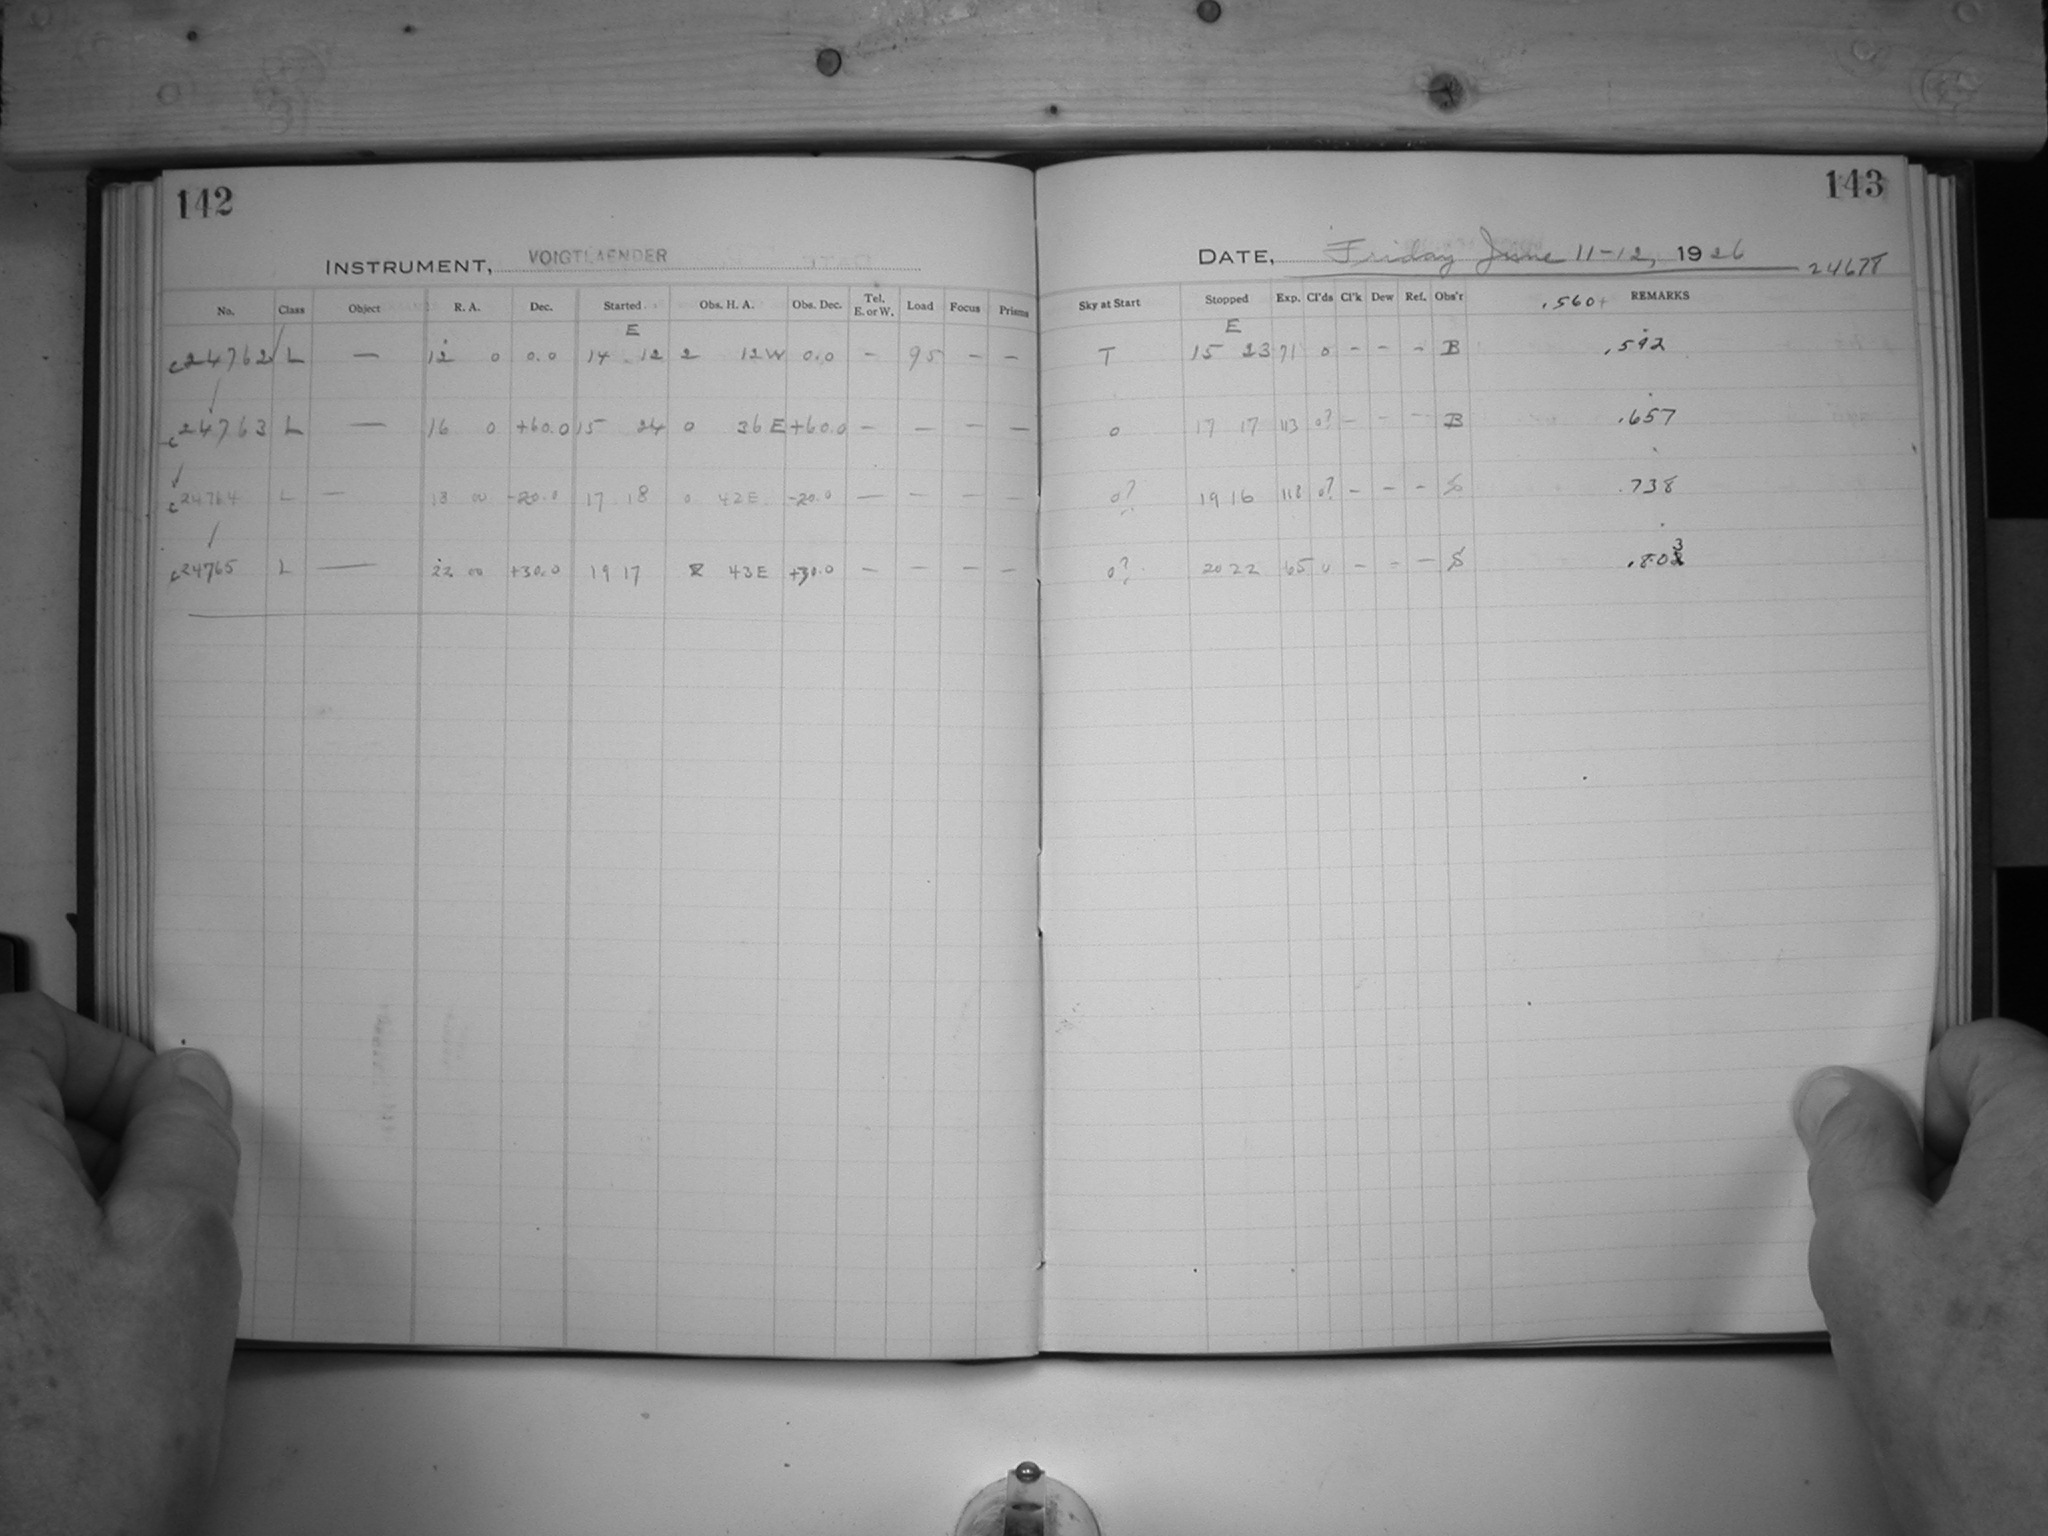 142
143
INSTRUMENT, VOIGTLAENDER
DATE, Friday June 11-12, 1926 24678
No. Class Object R. A. Dec. Started Obs. H. A. Obs. Dec. Tel. E. or W. Load Focus Prisms Sky at Start Stopped Exp. Cl'ds Cl'k Dew Ref. Obs'r .560+ REMARKS
E E
c24762 L — 12 0 0.0 14 12 2 12W 0.0 — 95 — — T 15 23 71 0 — — — B .592
c24763 L — 16 0 +60.0 15 24 0 36E +60.0 — — — — 0 17 17 113 0? — — — B .657
c24764 L — 18 00 -20.0 17 18 0 42E -20.0 — — — — 0? 19 16 118 0? — — — S .738
c24765 L — 22 00 +30.0 19 17 2 43E +30.0 — — — — 0? 20 22 65 0 — — — S .803